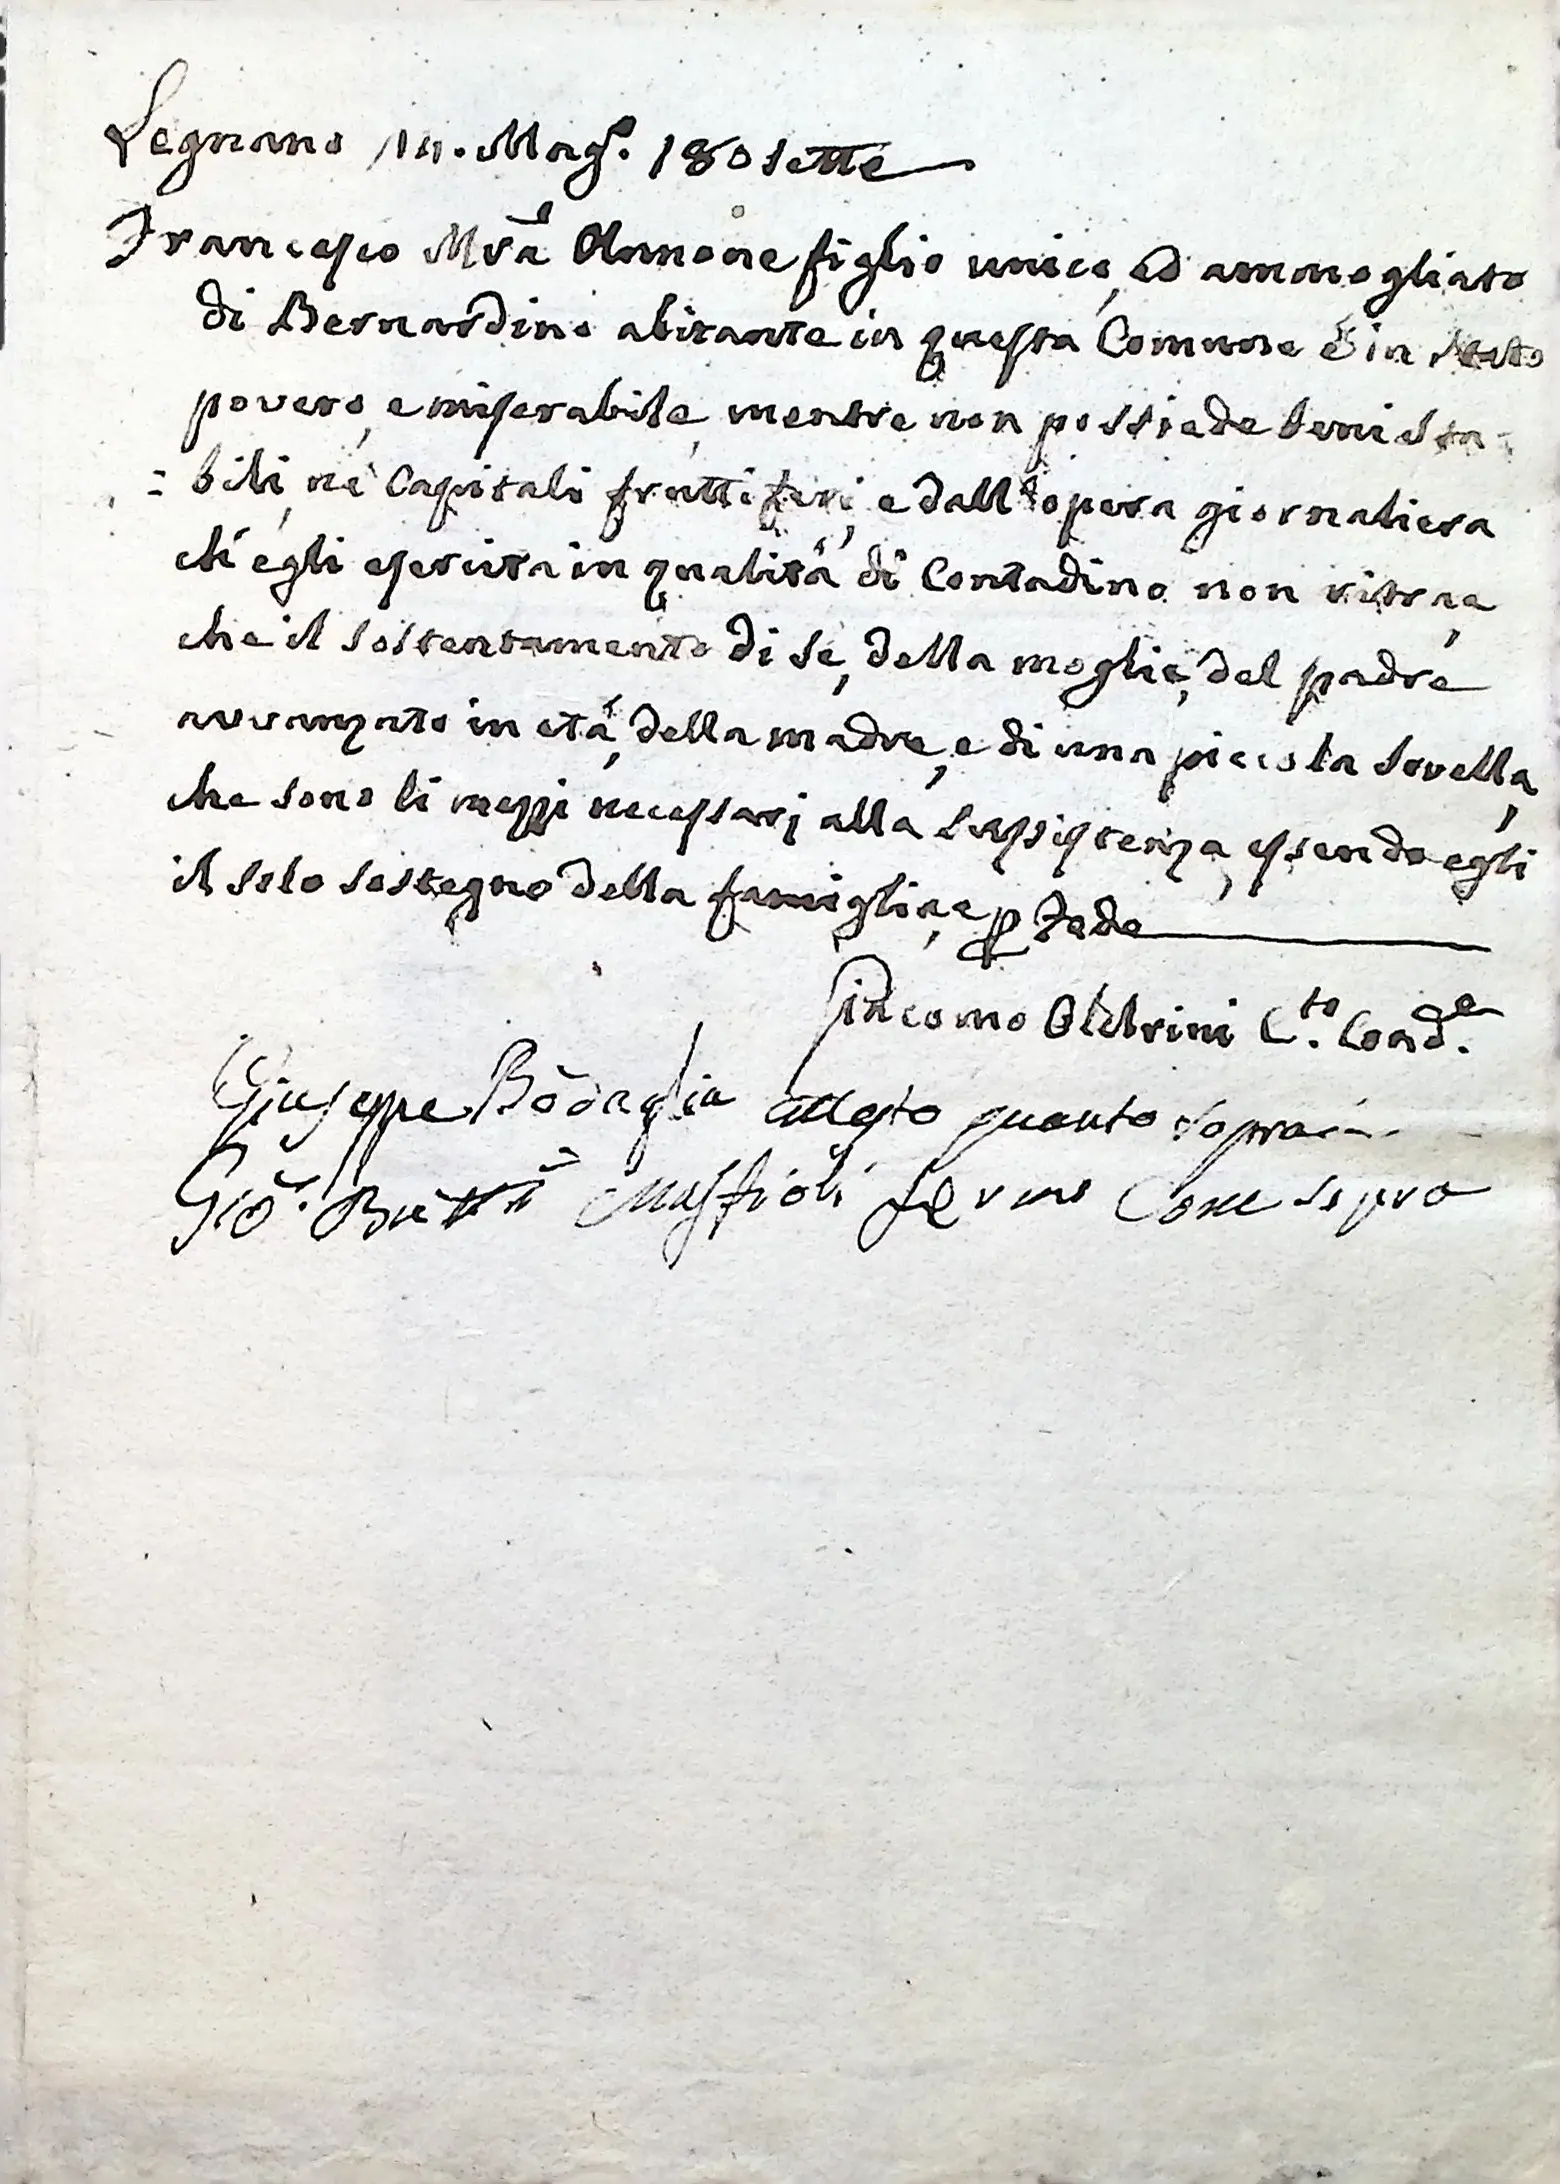 Legnano 14. Mag.o 180sette
Francesco M.ra Annone figlio unico, ed ammogliato
di Bernardino abitante in questa Comune è in stato
povero, e miserabile, mentre non possiede beni sta=
=bili, né Capitali fruttiferi, e dall'opera giornaliera
ch'egli esercita in qualità di Contadino non ritrae,
che il sostentamento di se, della moglie, del padre
avvanzato in età, della madre, e di una piccola sorella,
che sono li mezzi necessarj alla sussistenza, essendo egli
il solo sostegno della famiglia, e p fede
Giacomo Oldrini C.to Cond.e
Giuseppe Bodaglia attesto quanto sopra
Gio. Batta come sopra